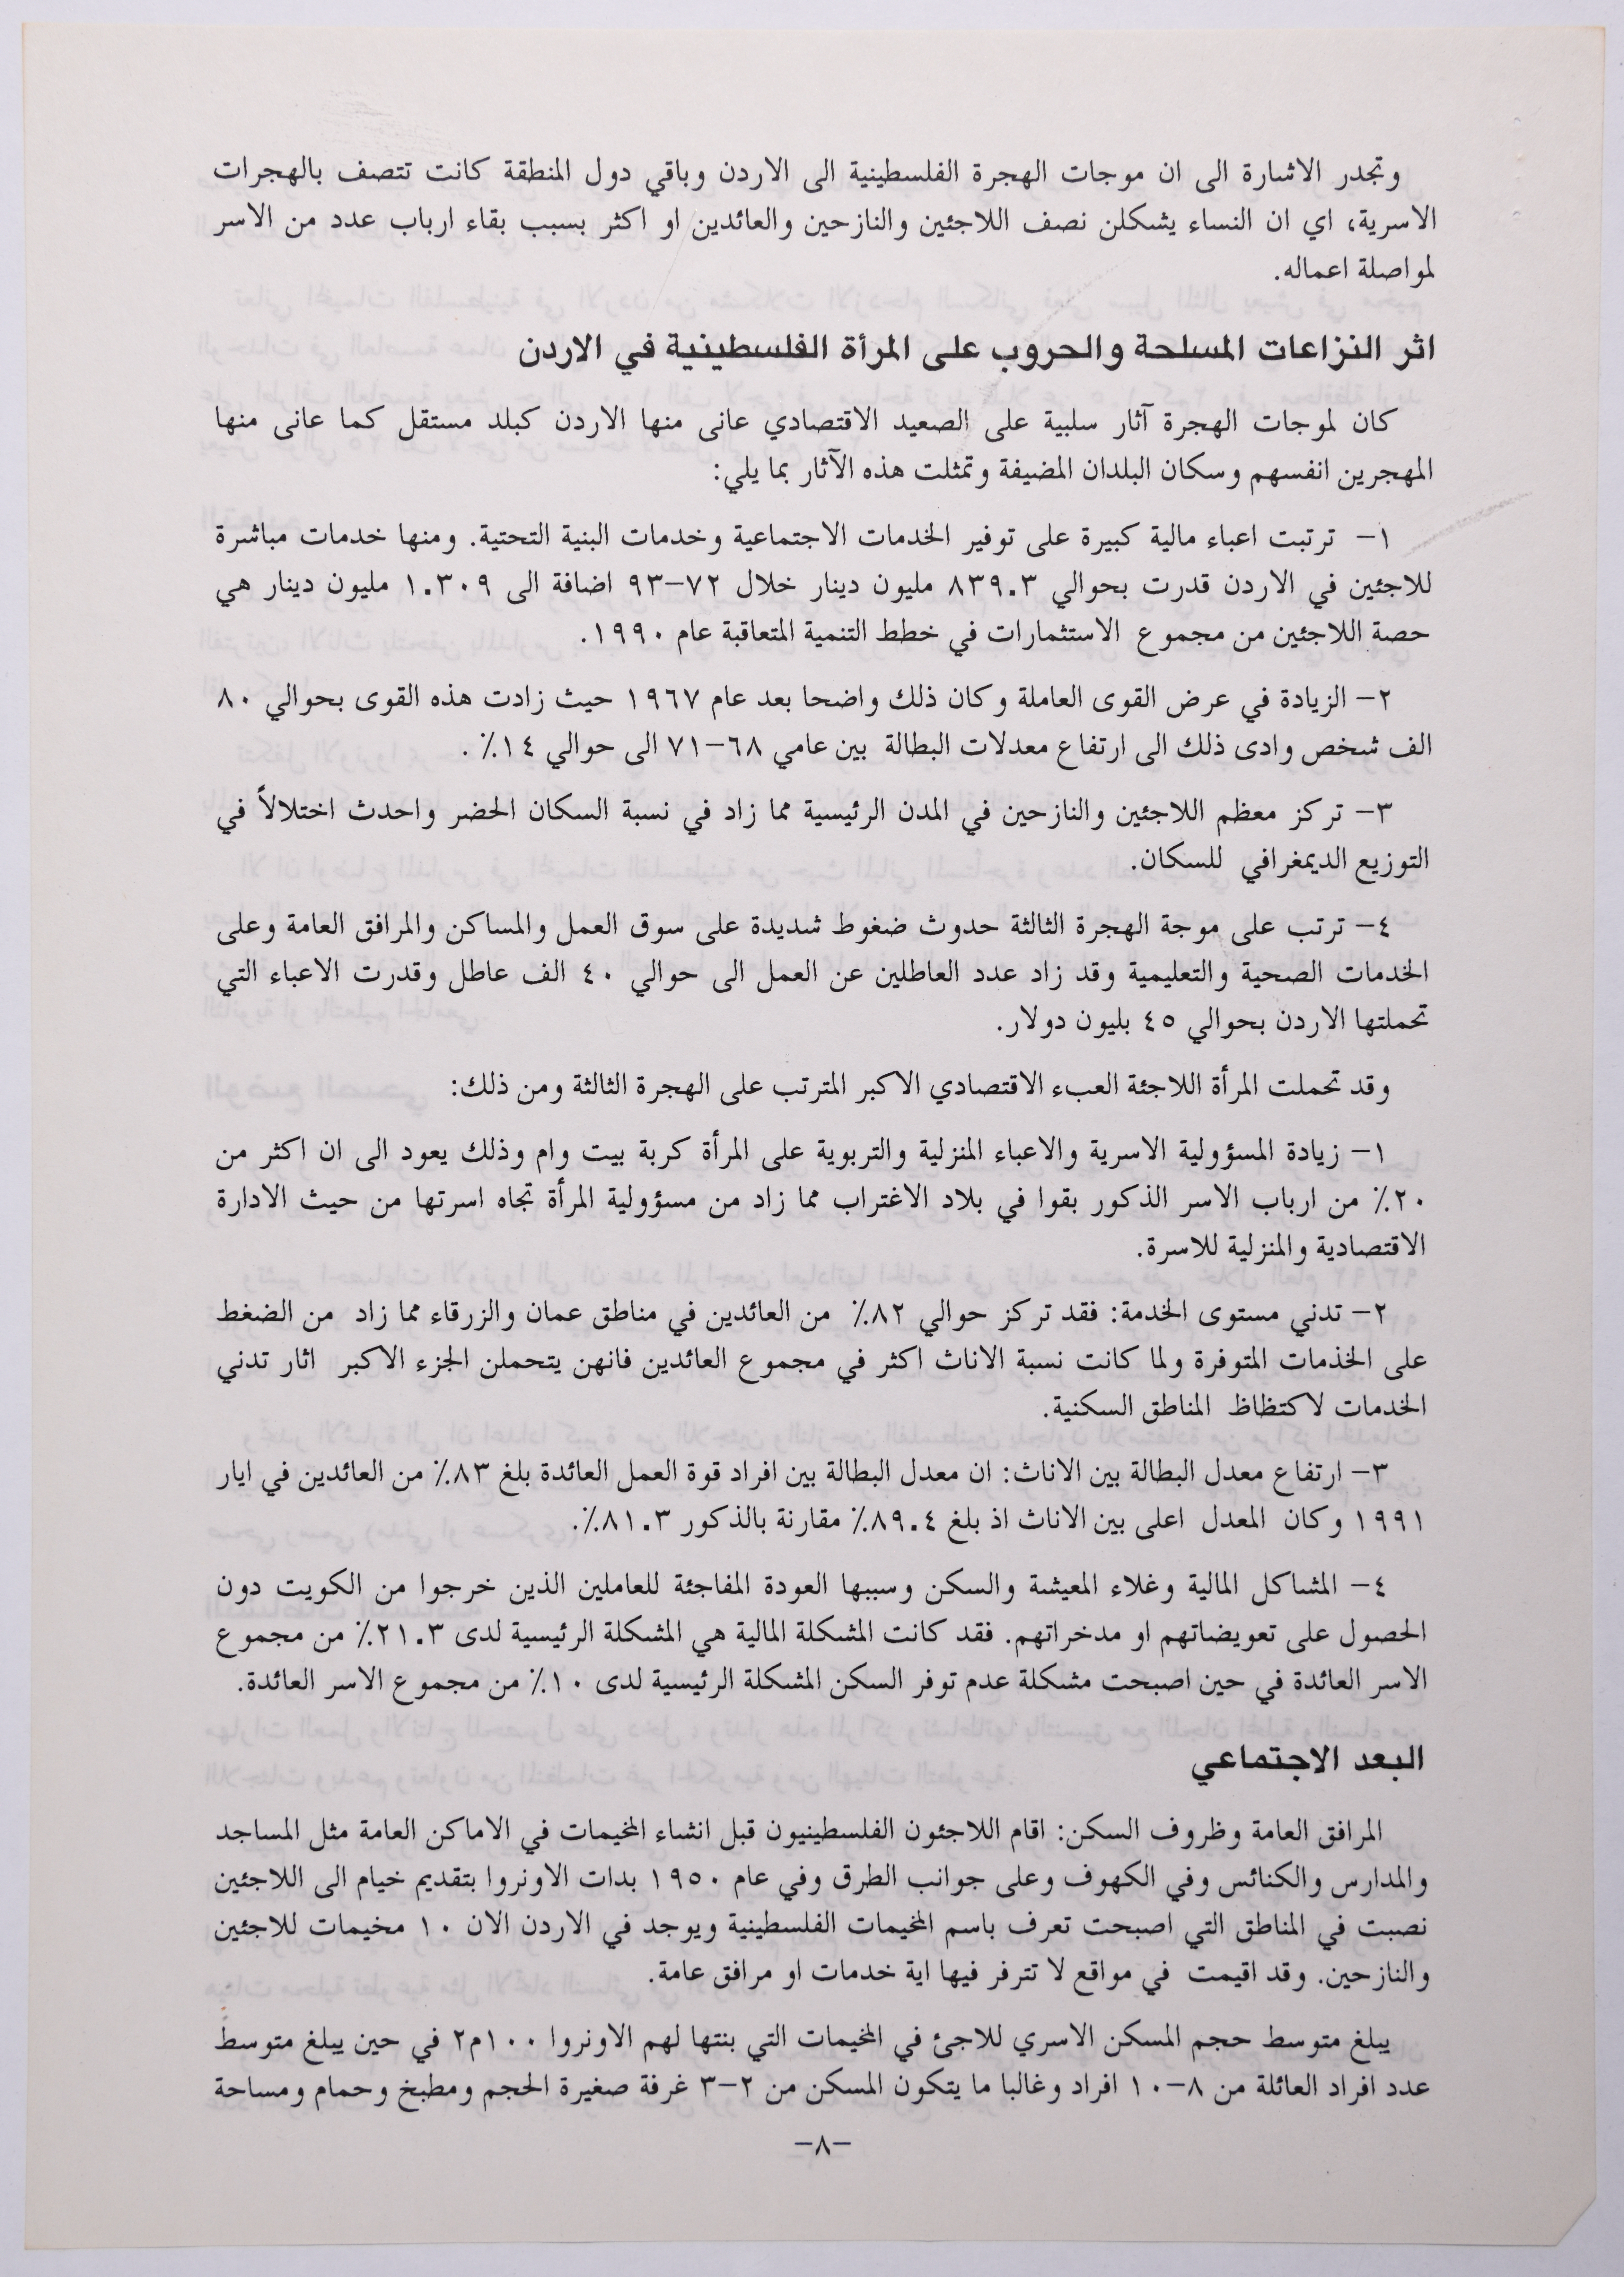 وتجدر الاشارة الى ان موجات الهجرة الفلسطينية الى الاردن وباقي دول المنطقة كانت تتصف بالهجرات
الاسرية، اي ان النساء يشكلن نصف اللاجئين والنازحين والعائدين او اكثر بسبب بقاء ارباب عدد من الاسر
لمواصلة اعماله.
اثر النزاعات المسلحة والحروب على المرأة الفلسطينية في الاردن
كان لموجات الهجرة آثار سلبية على الصعيد الاقتصادي عانى منها الاردن كبلد مستقل كما عانى منها
المهجرين انفسهم وسكان البلدان المضيفة وتمثلت هذه الآثار بما يلي:
١- ترتبت اعباء مالية كبيرة على توفير الخدمات الاجتماعية وخدمات البنية التحتية. ومنها خدمات مباشرة
للاجئين في الاردن قدرت بحوالي ٨٣٩.٣ مليون دينار خلال ٧٢-٩٣ اضافة الى ١.٣٠٩ مليون دينار هي
حصة اللاجئين من مجموع الاستثمارات في خطط التنمية المتعاقبة عام ١٩٩٠.
٢- الزيادة في عرض القوى العاملة وكان ذلك واضحا بعد عام ١٩٦٧ حيث زادت هذه القوى بحوالي ٨٠
الف شخص وادى ذلك الى ارتفاع معدلات البطالة بين عامي ٦٨-٧١ الى حوالي ١٤٪ .
٣- تركز معظم اللاجئين والنازحين في المدن الرئيسية مما زاد في نسبة السكان الحضر واحدث اختلالاً في
التوزيع الديمغرافي للسكان.
٤- ترتب على موجة الهجرة الثالثة حدوث ضغوط شديدة على سوق العمل والمساكن والمرافق العامة وعلى
الخدمات الصحية والتعليمية وقد زاد عدد العاطلين عن العمل الى حوالي ٤٠ الف عاطل وقدرت الاعباء التي
تحملتها الاردن بحوالي ٤٥ بليون دولار.
وقد تحملت المرأة اللاجئة العبء الاقتصادي الاكبر المترتب على الهجرة الثالثة ومن ذلك:
١- زيادة المسؤولية الاسرية والاعباء المنزلية والتربوية على المرأة كربة بيت وام وذلك يعود الى ان اكثر من
٢٠٪ من ارباب الاسر الذكور بقوا في بلاد الاغتراب مما زاد من مسؤولية المرأة تجاه اسرتها من حيث الادارة
الاقتصادية والمنزلية للاسرة.
٢- تدني مستوى الخدمة: فقد تركز حوالي ٨٢٪ من العائدين في مناطق عمان والزرقاء مما زاد من الضغط
على الخذمات المتوفرة ولما كانت نسبة الاناث اكثر في مجموع العائدين فانهن يتحملن الجزء الاكبر اثار تدني
الخدمات لاكتظاظ المناطق السكنية.
٣- ارتفاع معدل البطالة بين الاناث: ان معدل البطالة بين افراد قوة العمل العائدة بلغ ٨٣٪ من العائدين في ايار
١٩٩١ وكان المعدل اعلى بين الاناث اذ بلغ ٨٩.٤٪ مقارنة بالذكور ٨١.٣٪.
٤- المشاكل المالية وغلاء المعيشة والسكن وسببها العودة المفاجئة للعاملين الذين خرجوا من الكويت دون
الحصول على تعويضاتهم او مدخراتهم. فقد كانت المشكلة المالية هي المشكلة الرئيسية لدى ٢١.٣٪ من مجموع
الاسر العائدة في حين اصبحت مشكلة عدم توفر السكن المشكلة الرئيسية لدى ١٠٪ من مجموع الاسر العائدة.
البعد الاجتماعي
المرافق العامة وظروف السكن: اقام اللاجئون الفلسطينيون قبل انشاء المخيمات في الاماكن العامة مثل المساجد
والمدارس والكنائس وفي الكهوف وعلى جوانب الطرق وفي عام ١٩٥٠ بدات الاونروا بتقديم خيام الى اللاجئين
نصبت في المناطق التي اصبحت تعرف باسم المخيمات الفلسطينية ويوجد في الاردن الان ١٠ مخيمات للاجئين
والنازحين. وقد اقيمت في مواقع لا تترفر فيها اية خدمات او مرافق عامة.
يبلغ متوسط حجم المسكن الاسري للاجئ في المخيمات التي بنتها لهم الاونروا ١٠٠م٢ في حين يبلغ متوسط
عدد افراد العائلة من ٨-١٠ افراد وغالبا ما يتكون المسكن من ٢-٣ غرفة صغيرة الحجم ومطبخ وحمام ومساحة
-٨-